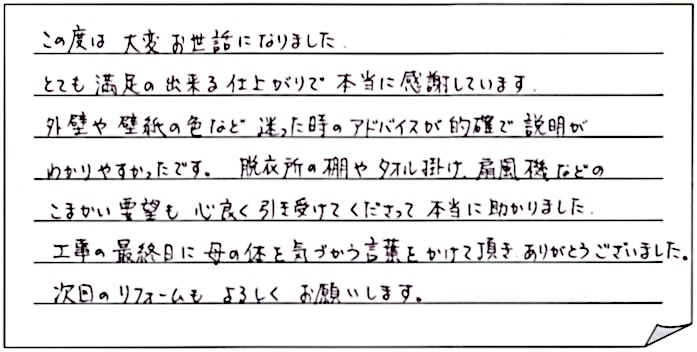 この度は 大変 お世話になりました.
とても 満足の出来る仕上がりで 本当に感謝しています.
外壁や 壁紙の色など 迷った時のアドバイスが的確で 説明が
わかりやすかったです。 脱衣所の棚や タオル掛け、扇風機などの
こまかい要望も 心良く引き受けてくださって 本当に助かりました.
工事の最終日に 母の体を気づかう言葉をかけて頂き ありがとうございました。
次回のリフォームも よろしく お願いします。